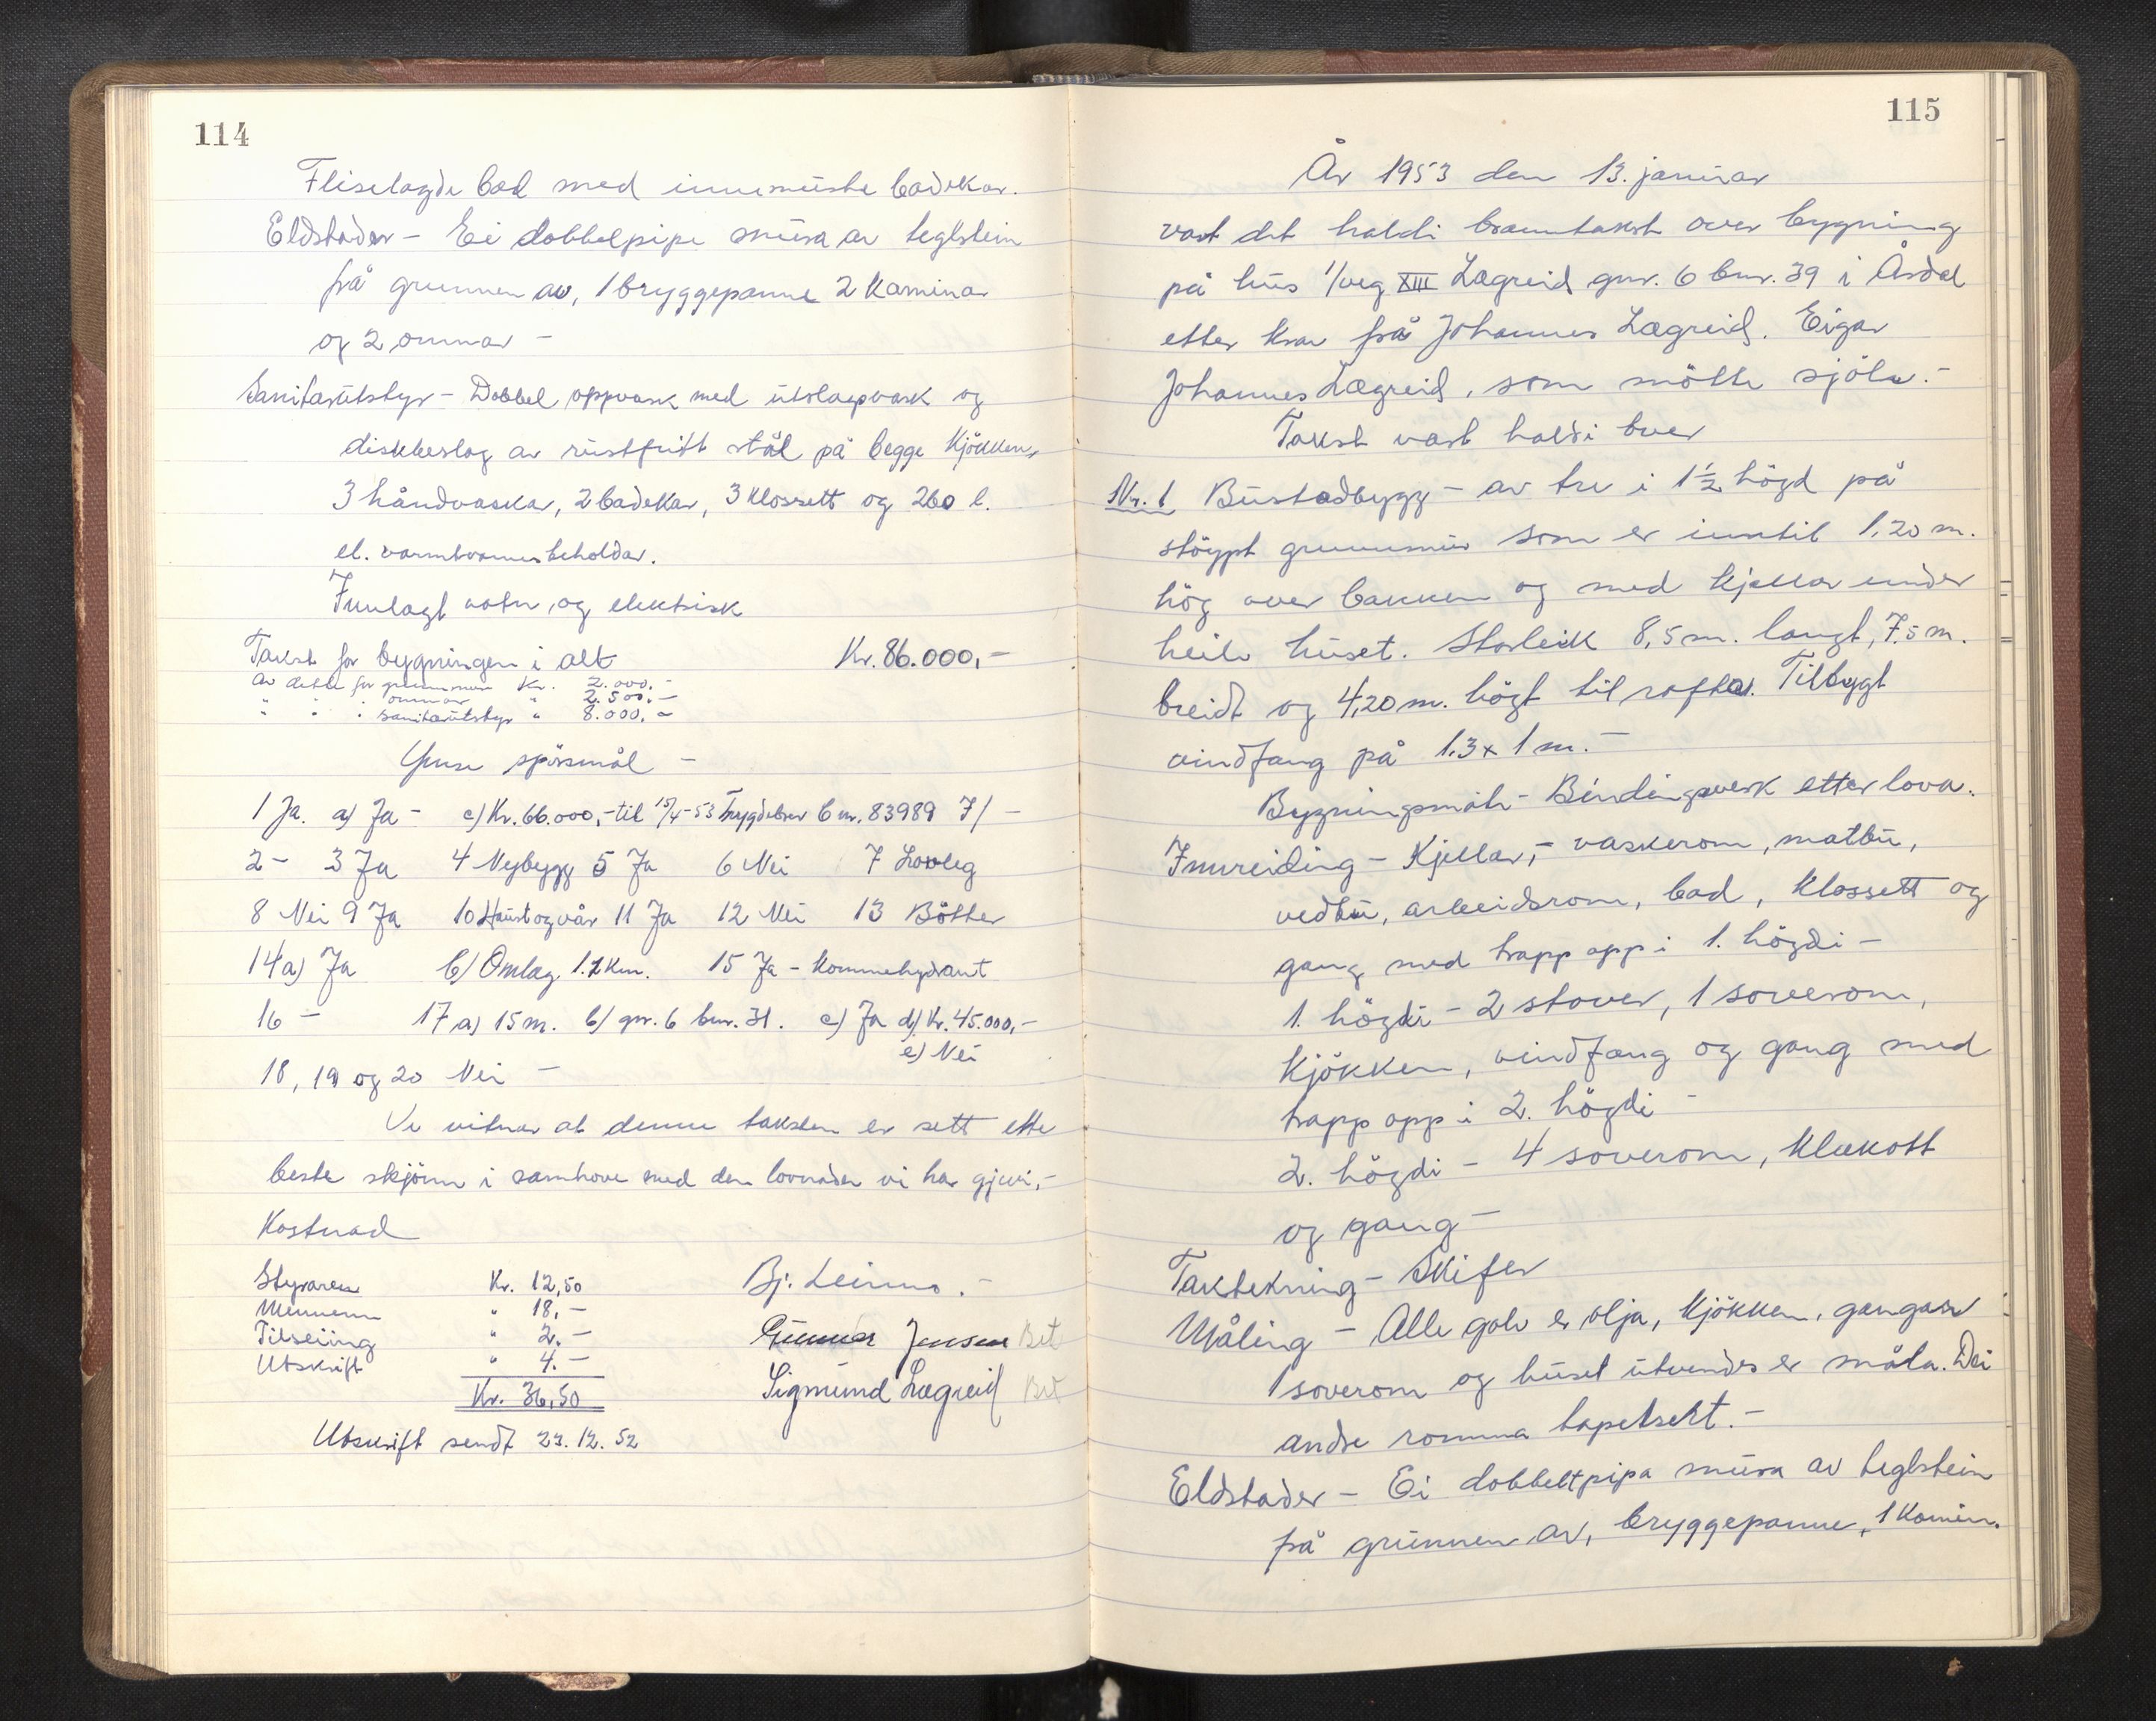 114
Fliselagde bad med innemurte badekar.
Eldstader - Ei dobbelpipe mura av teglstein
frå grunnen av, 1 bryggepanne 2 Kaminar
og 2 omnar -
Sanitærutstyr - Dobbel oppvask med utslagsvask og
diskbeslag av rustfritt stål på begge Kjökken,
3 håndvaskar, 2 badekar, 3 Klossett og 260 l.
el. varmtvannsbeholdar.
Innlagt vatn og elektrisk
Takst for bygningen i alt Kr. 86.000,-
Av dette for grunnmur Kr. 2.000,-
" " " omnar " 2.500,-
" " " sanitærutstyr " 8.000,-
Ymse spörsmål -
1 Ja. a) Ja - c) Kr. 66.000,- til 15/4-53 Trygdebrev bnr. 83989 7/ -
2 - 3 Ja 4 Nybygg 5 Ja 6 Nei 7 Lovleg
8 Nei 9 Ja 10 Haust og vår 11 Ja 12 Nei 13 Bötter
14 a) Ja b) Omlag 1.2 Km. 15 Ja - Kommehydrant
16 - 17 a) 15 m. b) gnr. 6 bnr. 31. c) Ja d) Kr. 45.000,-
e) Nei
18, 19 og 20 Nei -
Vi vitnar at denne taksten er sett ette
beste skjönn i samhove med den lovnaden vi har gjevi,-
Kostnad
Styraren Kr. 12,50 Bj. Leirmo.-
Mennene " 18,-
Tilseiing " 2.- Gunnar Jensen Bet
Utskrift " 4.-
Kr. 36,50 Sigmund Lægreid Bet
Utskrift sendt 23.12.52
115
År 1953 den 13. januar
vart det haldi branntakst over bygning
på hus 1/veg XIII Lægreid gnr. 6 bnr. 39 i Årdal
etter krav frå Johannes Lægreid. Eigar
Johannes Lægreid, som mötte sjölv.-
Takst vart haldi over
Nr. 1 Bustadbygg - av tre i 1½ högd på
stöypt grunnmur som er inntil 1,20 m.
hög over bakken og med kjellar under
heile huset. Storleik 8,5 m. langt, 7.5 m.
breidt og 4,20 m. högt til raftar. Tilbygt
vindfang på 1.3 x 1 m.-
Bygningsmåte - Bindingsverk etter lova.
Innreiding - Kjellar,- vaskerom, matbu,
vedbu, arbeidsrom, bad, Klossett og
gang med trapp opp i 1. högdi -
1. högdi - 2 stover, 1 soverom,
Kjökken, vindfang og gang med
trapp opp i 2. högdi -
2. högdi - 4 soverom, Klekott
og gang -
Taktekning - Skifer
Måling - Alle golv er olja, Kjökken, gangar
1 soverom og huset utvendes er måla. Dei
andre romma tapetsert.-
Eldstader - Ei dobbeltpipa mura av teglstein
frå grunnen av, bryggepanne, 1 Kamin.